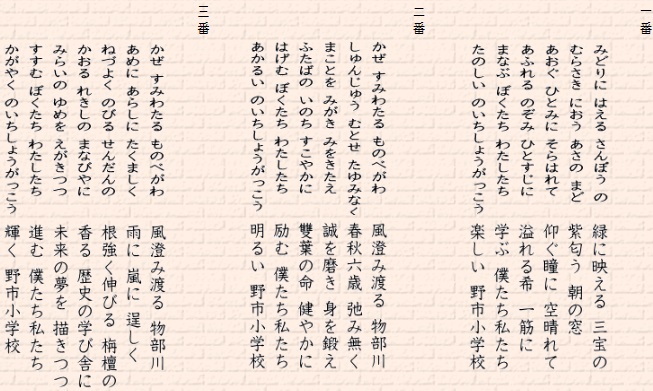 一番
みどりに はえる さんぼう の
むらさき におう あさの まど
あおぐ ひとみに そらはれて
あふれる のぞみ ひとすじに
まなぶ ぼくたち わたしたち
たのしい のいちしょうがっこう
緑に映える 三宝の
紫匂う 朝の窓
仰ぐ瞳に 空晴れて
溢れる希 一筋に
学ぶ 僕たち私たち
楽しい 野市小学校
二番
かぜ すみわたる ものべがわ
しゅんじゅう むとせ たゆみなく
まことを みがき みをきたえ
ふたばの いのち すこやかに
はげむ ぼくたち わたしたち
あかるい のいちしょうがっこう
風澄み渡る 物部川
春秋六歳 弛み無く
誠を磨き 身を鍛え
雙葉の命 健やかに
励む 僕たち私たち
明るい 野市小学校
三番
かぜ すみわたる ものべがわ
あめに あらしに たくましく
ねづよく のびる せんだんの
かおる れきしの まなびやに
みらいの ゆめを えがきつつ
すすむ ぼくたち わたしたち
かがやく のいちしょうがっこう
風澄み渡る 物部川
雨に 嵐に 逞しく
根強く伸びる 栴檀の
香る 歴史の学び舎に
未来の夢を 描きつつ
進む 僕たち私たち
輝く 野市小学校